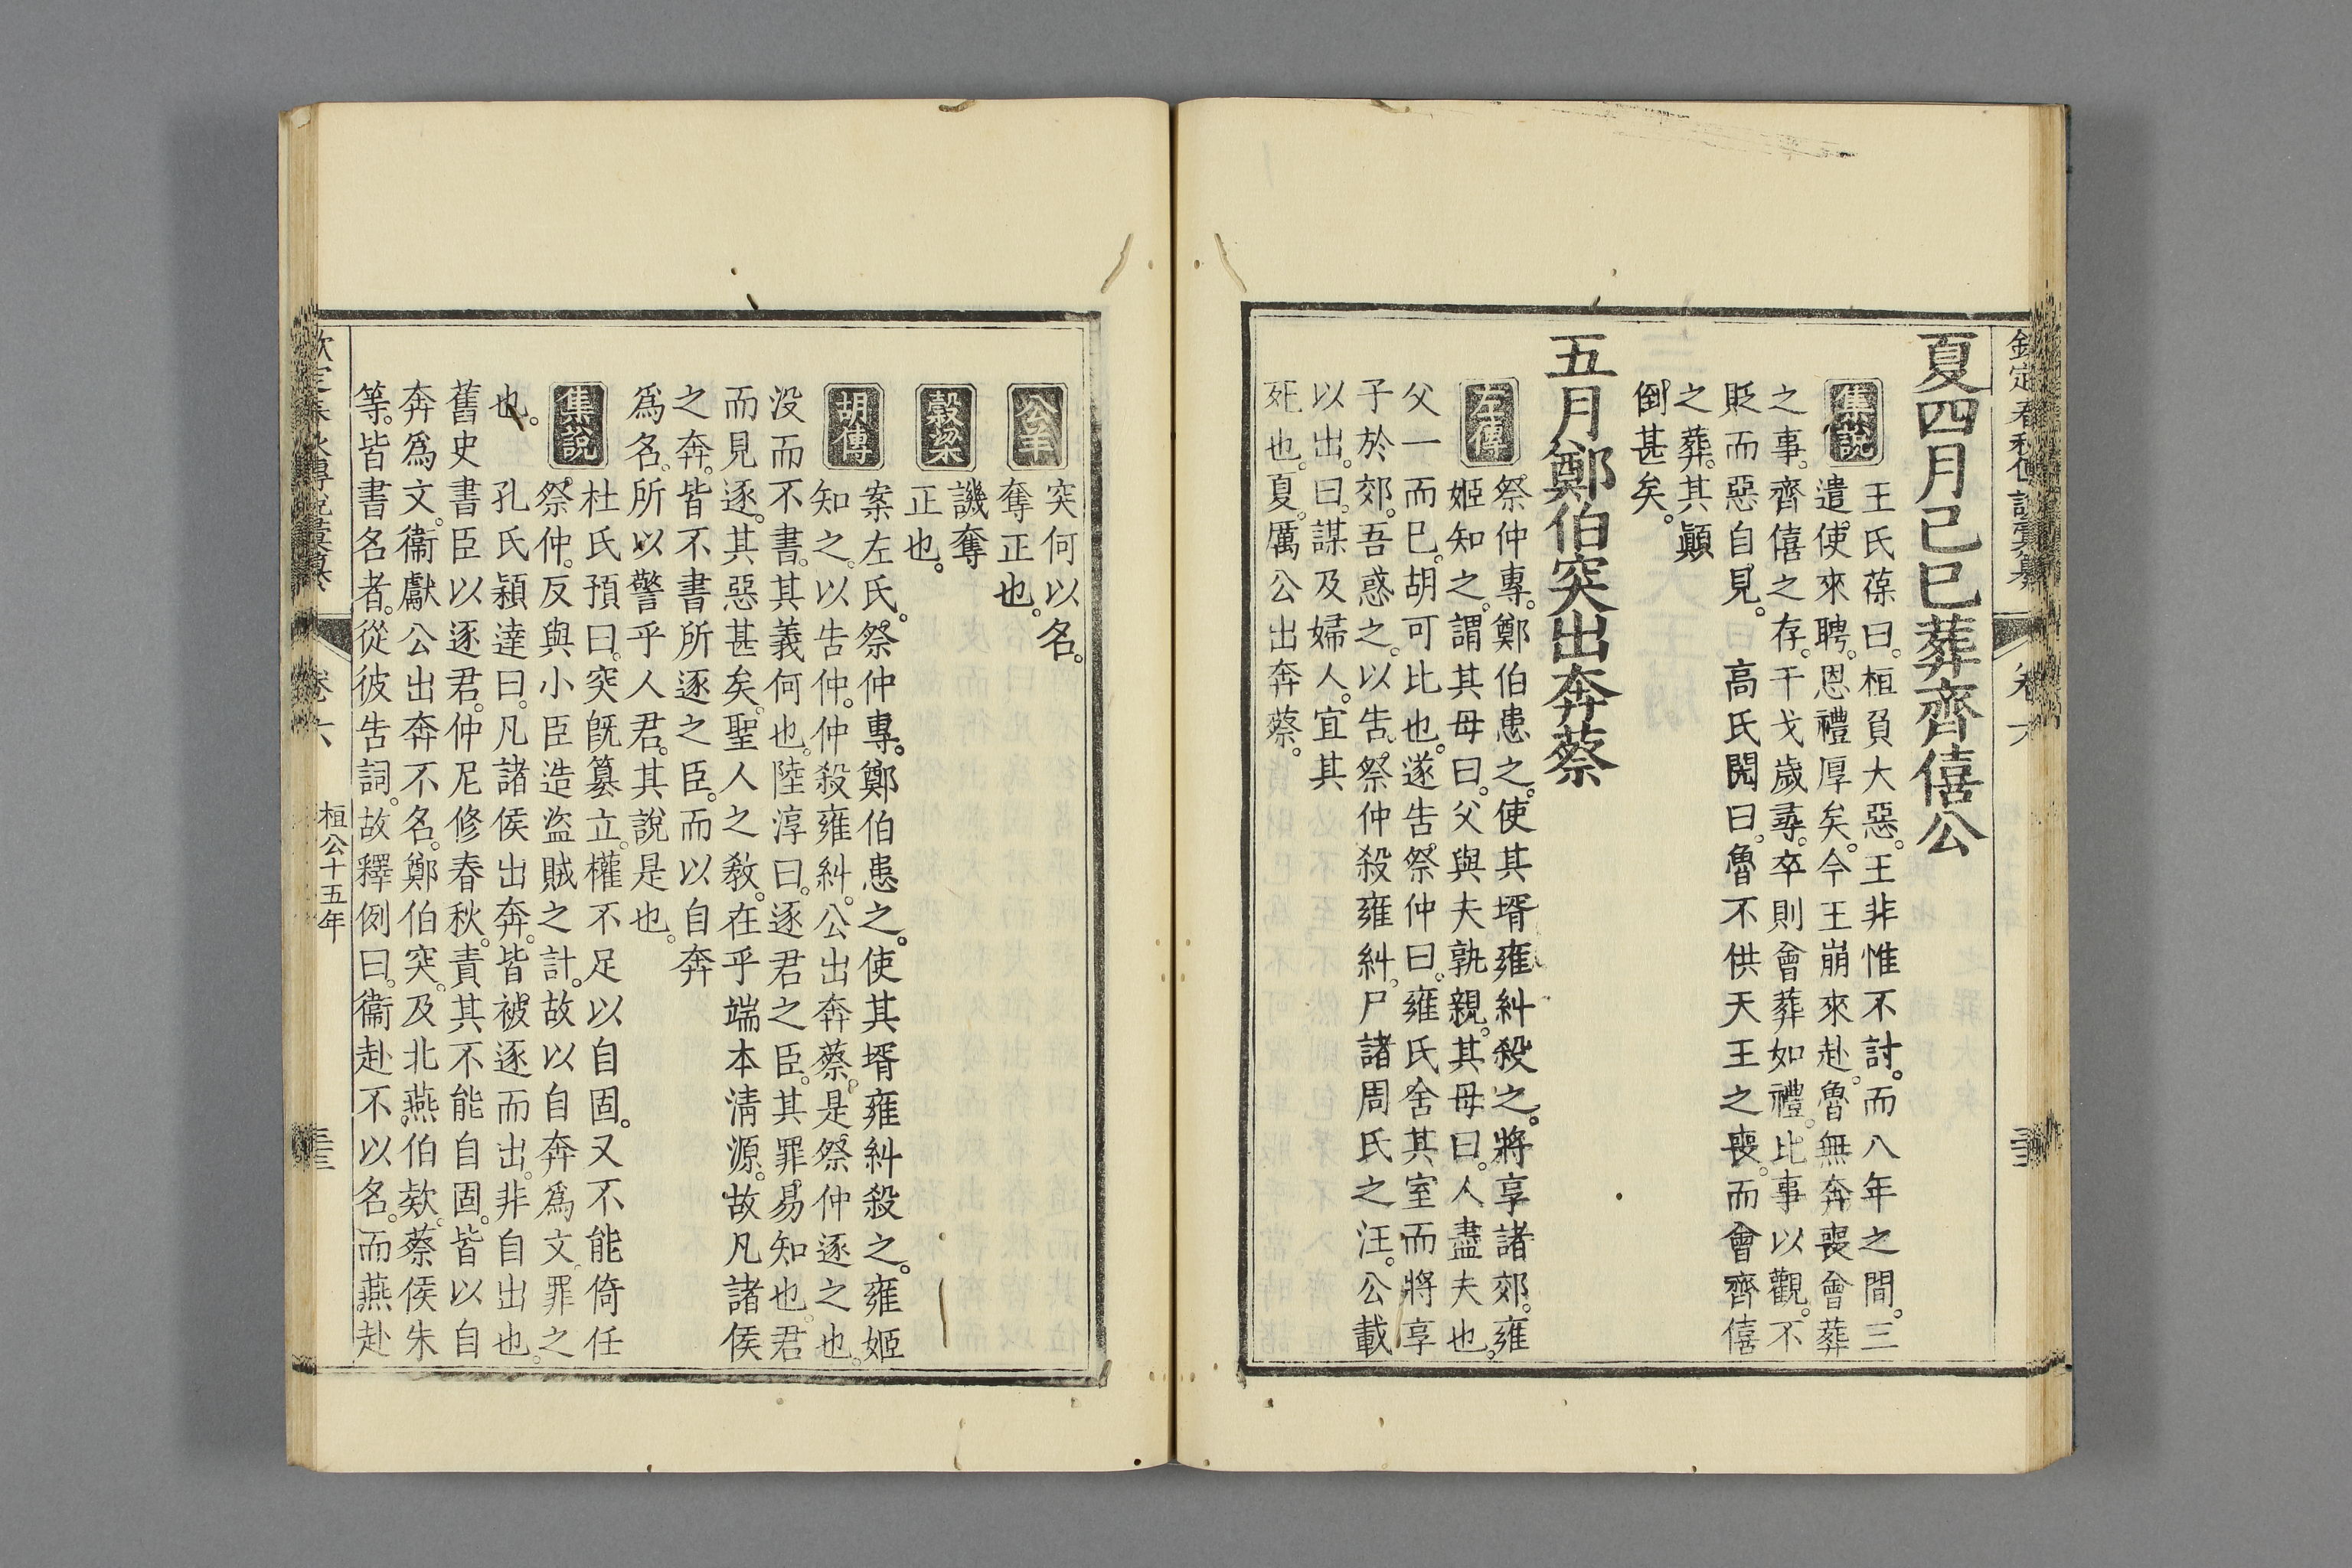 夏四月己巳葬齊僖公
集說
王氏葆曰。桓負大惡。王非惟不討。而八年之間。三
遣使來聘。恩禮厚矣。今王崩來赴。魯無奔喪會葬
之事。齊僖之存。干戈歲尋。卒則會葬如禮。比事以觀。不
貶而惡自見。　高氏閌曰。魯不供天王之喪。而會齊僖
之葬。其顚
倒甚矣。
五月鄭伯突出奔蔡
左傳
祭仲專。鄭伯患之。使其壻雍糾殺之。將享諸郊。雍
姬知之。謂其母曰。父與夫孰親。其母曰。人盡夫也。
父一而已。胡可比也。遂告祭仲曰。雍氏舍其室而將享
子於郊。吾惑之。以告。祭仲殺雍糾。尸諸周氏之汪。公載
以出。曰。謀及婦人。宜其
死也。夏。厲公出奔蔡。
公羊
突何以名。
奪正也。
穀梁
譏奪
正也。
胡傳
案左氏。祭仲專。鄭伯患之。使其壻雍糾殺之。雍姬
知之。以告仲。仲殺雍糾。公出奔蔡。是祭仲逐之也。
沒而不書。其義何也。陸淳曰。逐君之臣。其罪易知也。君
而見逐。其惡甚矣。聖人之敎。在乎端本淸源。故凡諸侯
之奔。皆不書所逐之臣。而以自奔
爲名。所以警乎人君。其說是也。
集說
杜氏預曰。突旣簒立。權不足以自固。又不能倚任
祭仲。反與小臣造盜賊之計。故以自奔爲文。罪之
也。　孔氏穎達曰。凡諸侯出奔。皆被逐而出。非自出也。
舊史書臣以逐君。仲尼修春秋。責其不能自固。皆以自
奔爲文。衞獻公出奔不名。鄭伯突。及北燕伯款。蔡侯朱
等。皆書名者。從彼告詞。故釋例曰。衞赴不以名。而燕赴
卷六
桓公十五年